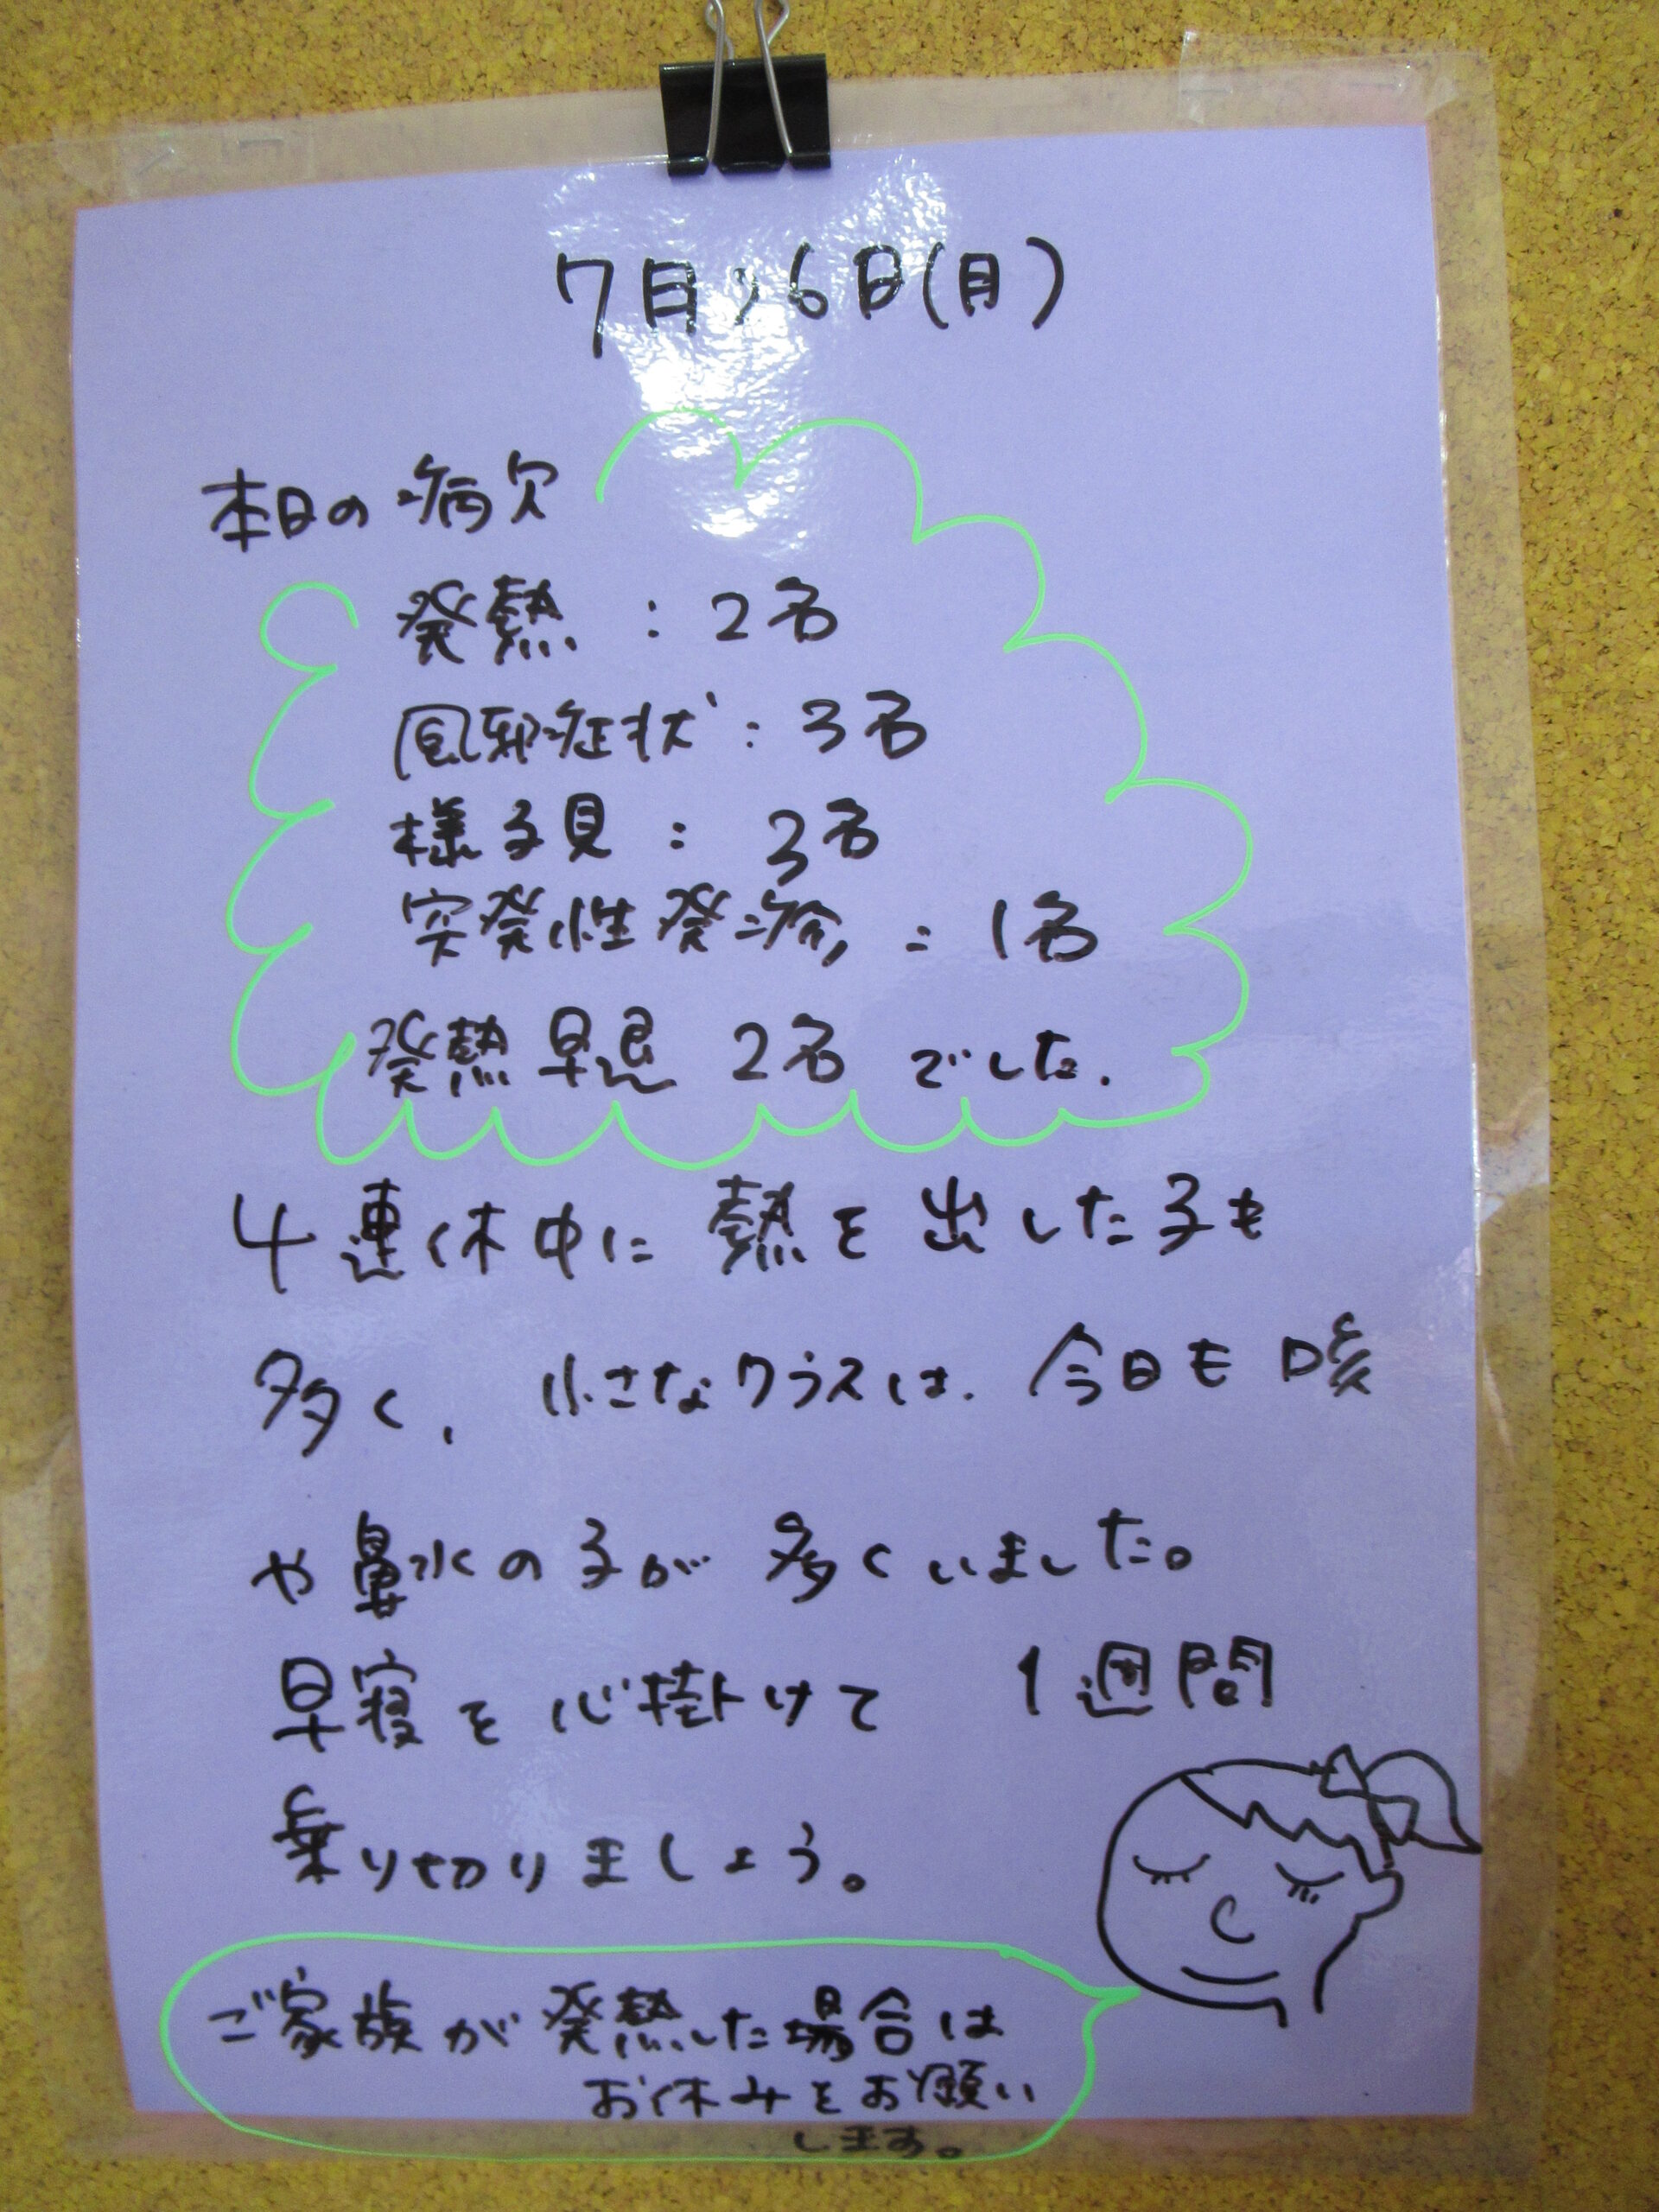 7月26日(月)
本日の病欠
発熱：2名
風邪症状：3名
様子見：3名
突発性発疹：1名
発熱早退 2名 でした.
4連休中に熱を出した子も
多く、小さなクラスは、今日も咳
や鼻水の子が多くいました。
早寝を心掛けて 1週間
乗り切りましょう。
ご家族が発熱した場合は
お休みをお願い
します。